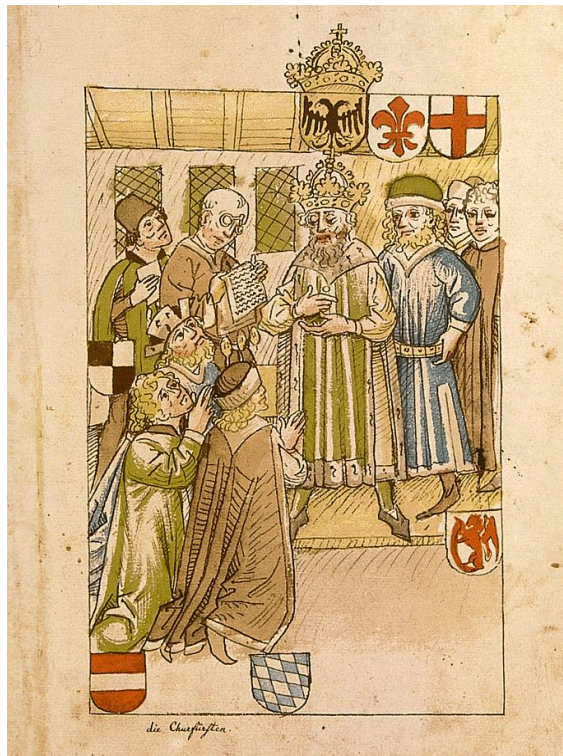 die Churfürsten.